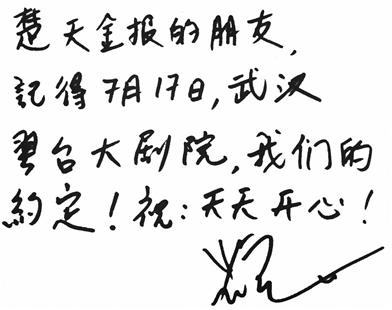 楚天金报的朋友,
記得7月17日,武汉
琴台大剧院,我们的
約定!祝:天天开心!